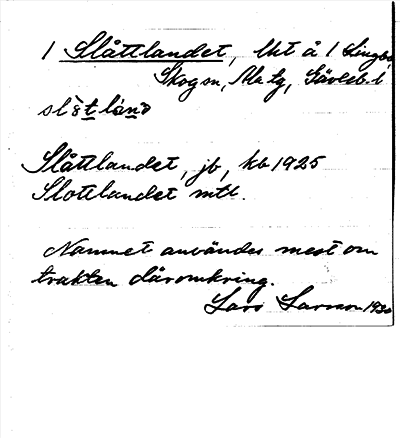 1 Slåttlandet, lht å 1 Lingbo,
Skog sn, Ala tg, Gävleb. l
Slåttlandet, jb, kb 1925
Slottlandet mtl.
Namnet användes mest om
trakten däromkring.
Lars Larsson 1930